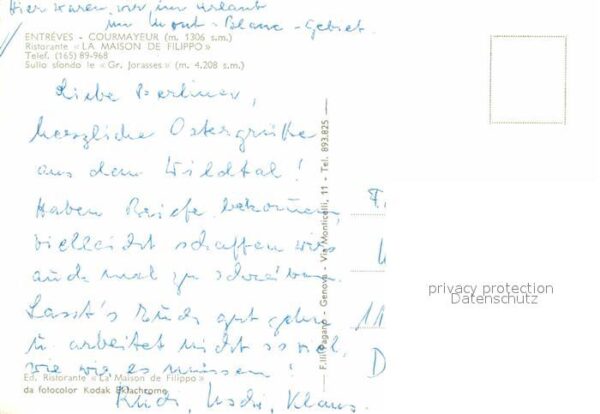 Hier waren wir im Urlaub
im Mont-Blanc-Gebiet.
ENTRÈVES - COURMAYEUR (m. 1306 s.m.)
Ristorante «LA MAISON DE FILIPPO»
Telef. (165) 89-968
Sullo sfondo le «Gr. Jorasses» (m. 4.208 s.m.)
Liebe Berliner,
herzliche Ostergrüße
aus dem Wildtal!
Haben Briefe bekommen,
vielleicht schaffen wirs
auch mal zu schreiben.
Lasst's Euch gut gehn
u. arbeitet nicht so viel,
wie wir es müssen!
Rudi, Uschi, Klaus.
Ed. Ristorante «La Maison de Filippo»
da fotocolor Kodak Ektachrome
F.lli Pagano - Genova - Via Monticelli, 11 - Tel. 893.825
F
11
D
privacy protection
Datenschutz